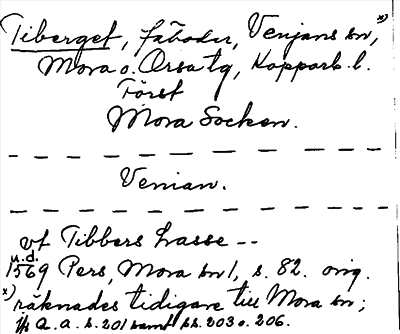 Tiberget, fäbodar, Venjans sn, x)
Mora o. Orsa tg, Kopparb. l.
Först
Mora Socken.
Venian.
vf Tibbers Lasse --
u.d.
1569 Pers, Mora sn 1, s. 82. orig.
x) räknades tidigare till Mora sn;
a. a. s. 201 samt ss. 203 o. 206.